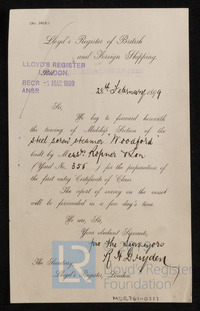 Lloyd's Register of British
and Foreign Shipping.
LLOYD'S REGISTER
LONDON
RECD -1 MAR 1899
ANSD
28th February 1899
Sir,
We beg to forward herewith
the tracing of Midship Section of the
steel screw steamer "Woodford"
built by Messrs Ropner & Son
(Yard No. 355) for the preparation of
the first entry Certificate of Class.
The report of survey on the vessel
will be forwarded in a few day's time.
We are, Sir,
Your obedient Servants,
for the Surveyors
The Secretary,
Lloyd's Register, London.
LR
Lloyd's Register
Foundation